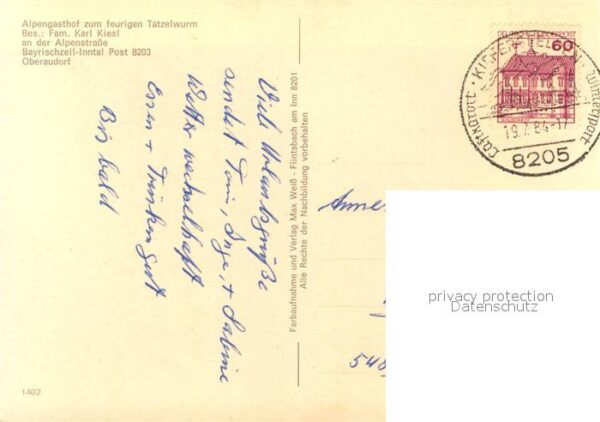 Alpengasthof zum feurigen Tatzelwurm
Bes.: Fam. Karl Kiesl
an der Alpenstraße
Bayrischzell-Inntal Post 8203
Oberaudorf
Viele Urlaubsgrüße
sendet Toni, Inge + Sabine
Wetter wechselhaft
Essen + Trinken gut
Bis bald
Farbaufnahme und Verlag Max Weiß · Flintsbach am Inn 8201
Alle Rechte der Nachbildung vorbehalten
DEUTSCHE BUNDESPOST
60
KIEFERSFELDEN
Luftkurort · Wintersport
19.7.84-17
8205
540
privacy protection
Datenschutz
1402